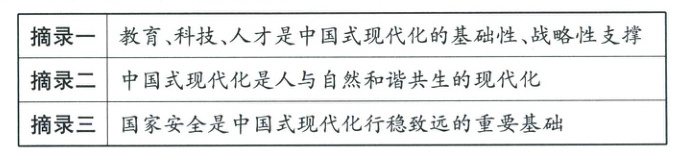 摘录一 教育、科技、人才是中国式现代化的基础性、战略性支撑
摘录二 中国式现代化是人与自然和谐共生的现代化
摘录三 国家安全是中国式现代化行稳致远的重要基础